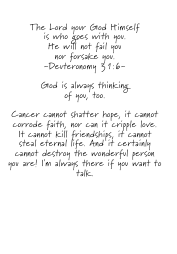 The Lord your God Himself
is who goes with you.
He will not fail you
nor forsake you.
-Deuteronomy 31:6-
God is always thinking
of you, too.
Cancer cannot shatter hope, it cannot
corrode faith, nor can it cripple love.
It cannot kill friendships, it cannot
steal eternal life. And it certainly
cannot destroy the wonderful person
you are! I'm always there if you want to
talk.